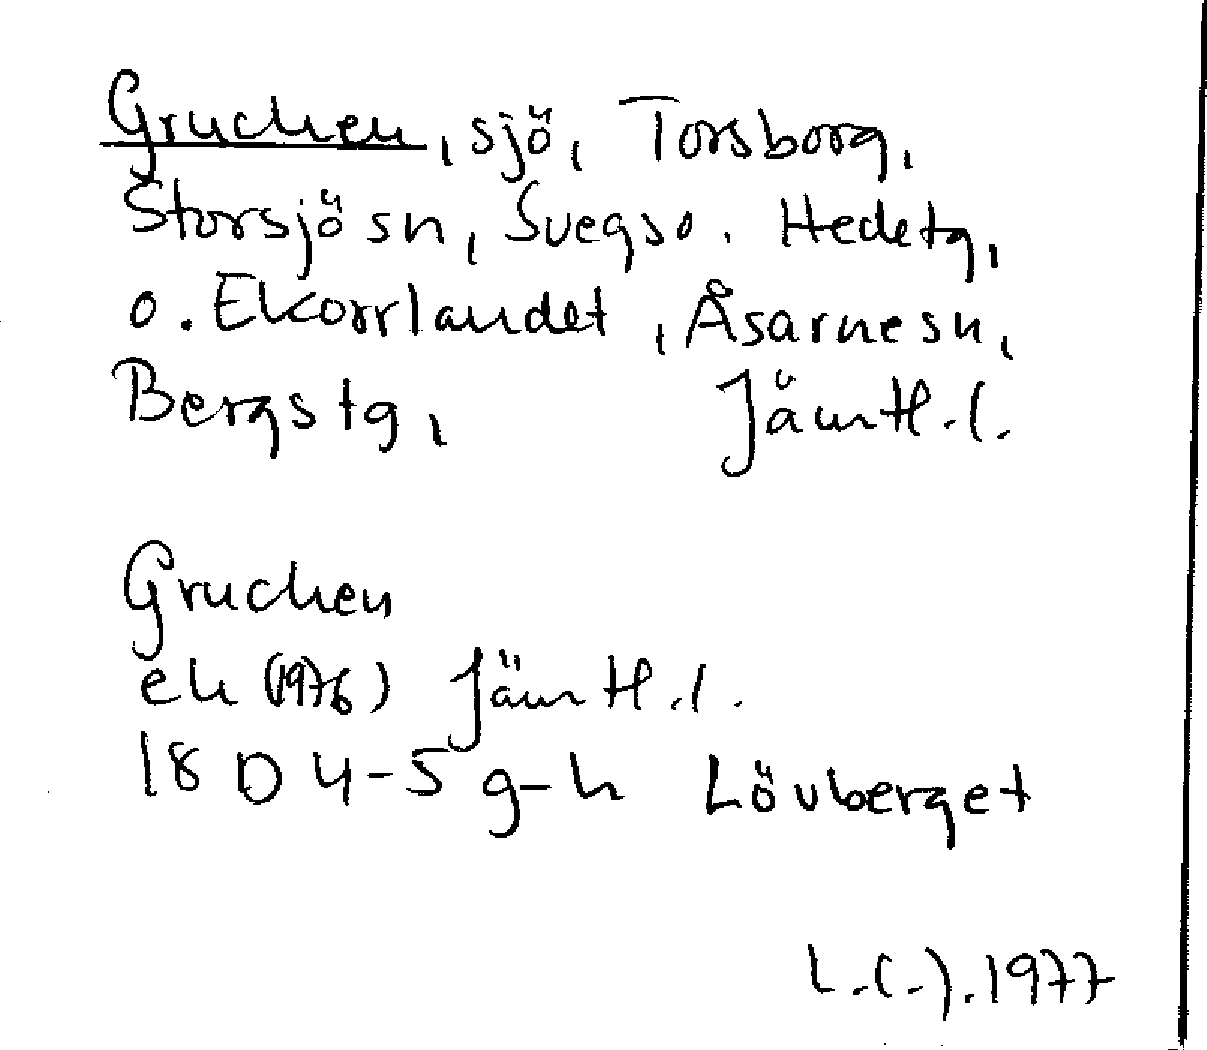 Gruchen, sjö, Torsborg,
Storsjö sn, Svegs o. Hede tg,
o. Ekorrlandet, Åsarne sn,
Bergs tg, Jämtl. l.
Gruchen
ek (1976) Jämtl. l.
18 D 4-5 g-h Lövberget
1977